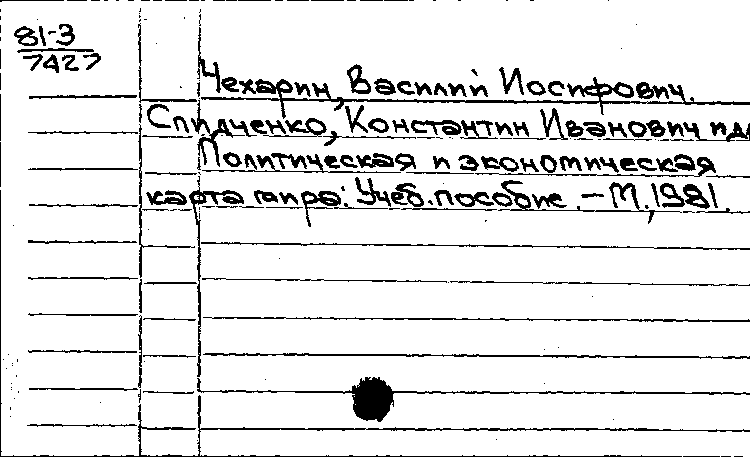 81-3
7427
Чехарин, Василий Иосифович.
Спидченко, Константин Иванович и др
Политическая и экономическая
карта мира: Учеб. пособие. – М., 1981.